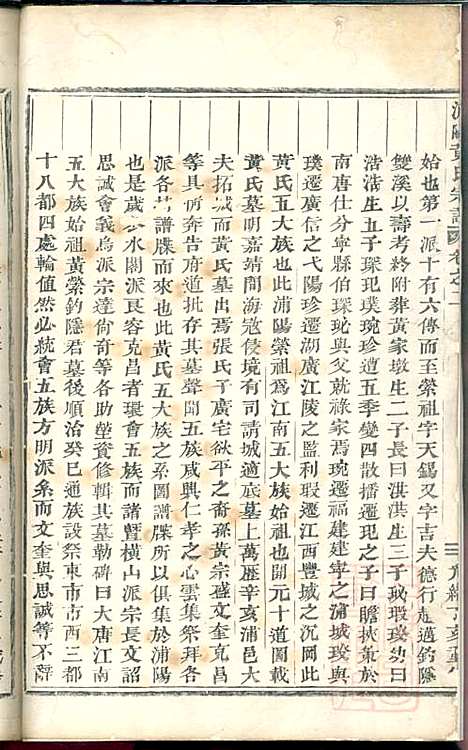 始也第一派十有六傳而至縈祖字天錫又字吉夫德行超邁釣隱
雙溪以壽考終附葬黃家墩生二子長曰洪洪生三子玧瑕璨玧曰
浩浩生五子琛玘璞琬珍遭五季變四散播遷玘之子曰瞻挾策於
南唐仕分寧縣伯琛玘與父就祿家焉琬遷福建建寧之浦城璞與
璞遷廣信之弋陽珍遷湖廣江陵之監利瑕遷江西豐城之沉岡此
黃氏五大族也此浦陽縈祖爲江南五大族始祖也開元十道圖載
黃氏墓明嘉靖間海寇侵境有司請城適底墓上萬曆辛亥浦邑大
夫拓城而黃氏墓出焉張氏子廣宅欲平之裔孫黃宗盛文奎克昌
等具情奔告府道批存其墓聲聞五族咸興仁孝之心雲集祭拜各
派各昔譜牒而來也此黃氏五大族之系圖譜牒所以俱集於浦陽
也是歲公水閣派艮容克昌者環會五族而諸暨橫山派宗長文詔
思誠會義烏派宗達尙奇等各助塋資修輯其墓勒碑曰大唐江南
五大族始祖黃縈釣隱君墓後順治癸巳通族設祭東市南市西三都
十八都四處輪值然必統會五族方明派系而文奎與思誠等不辭